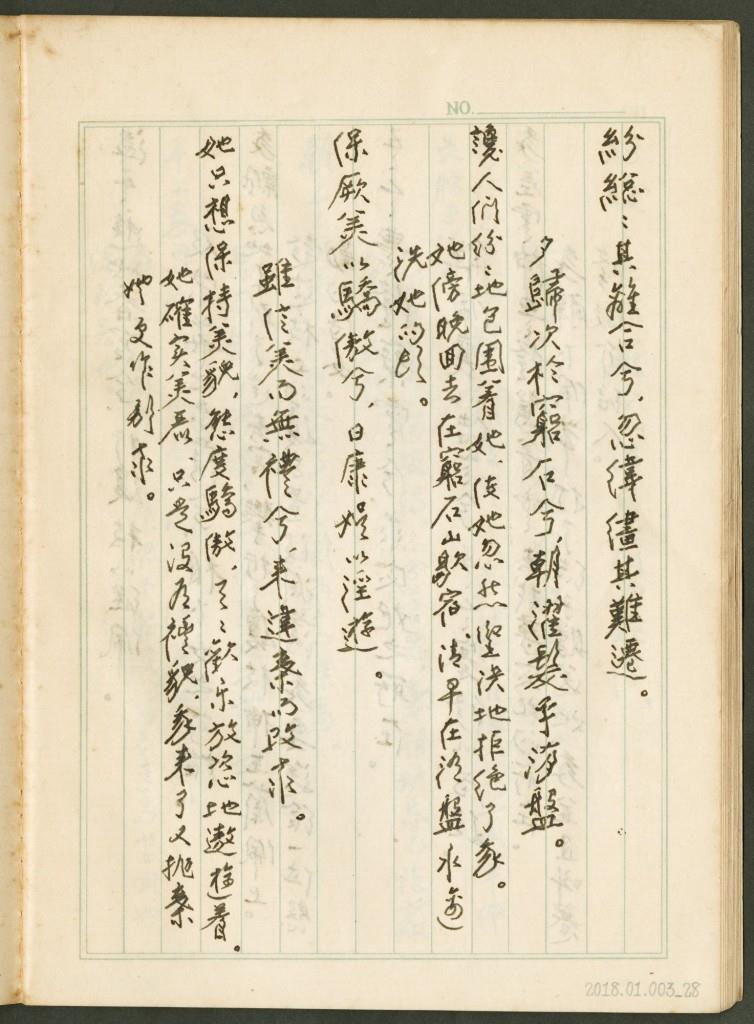 NO.
紛緫〻其離合兮，忽緯繣其難遷。
夕歸次於窮石兮，朝濯髮乎洧盤。
讓人們紛〻地包圍着她，使她忽然堅決地拒绝了我。
她傍晚回去在窮石山歇宿，清早在洧盤水边
洗她的。
保厥美以驕傲兮，日康娛以淫遊。
雖信美而無禮兮，來違棄而改求。
她只想保持美貌，態度驕傲，天〻歡乐放恣地遨遊着。
她確实美麗，只是没有禮貌，我来了又抛棄
她更作别求。
2018.01.003_28